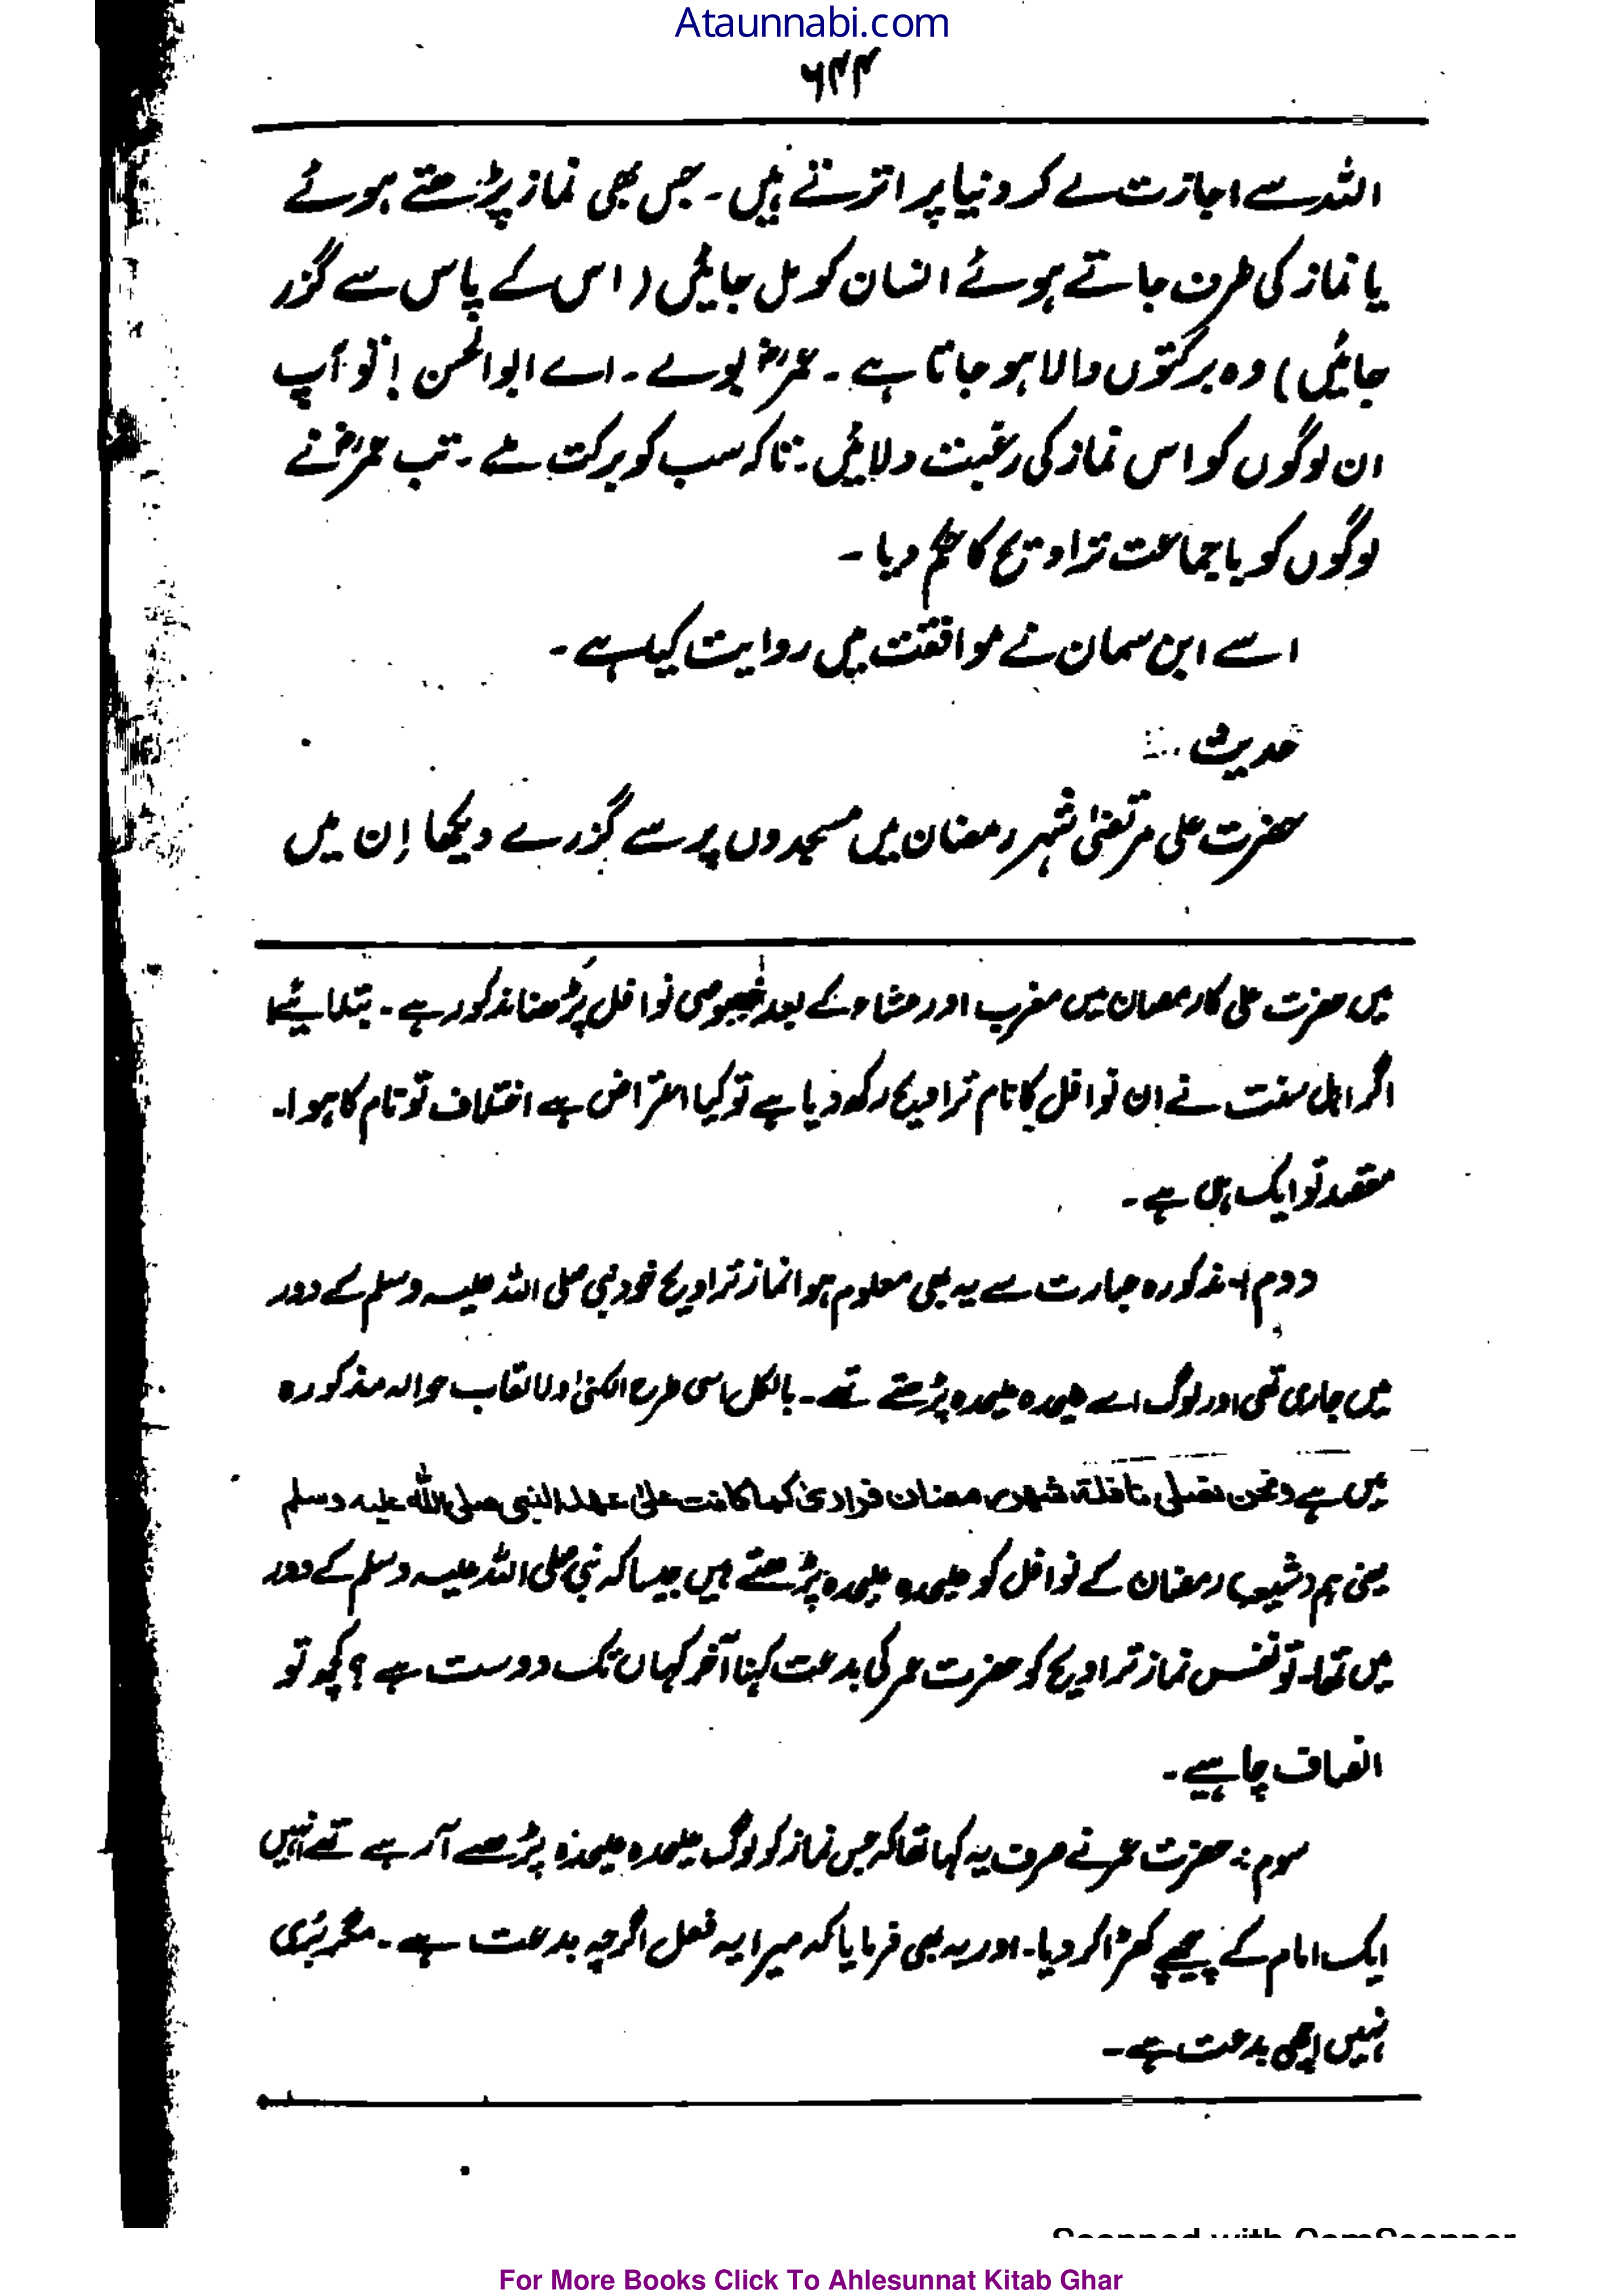 Ataunnabi.com
۶۴۴
اللہ سے اجازت لے کر دنیا پر اترتے ہیں۔ جس بھی نماز پڑھتے ہوئے
یا نماز کی طرف جاتے ہوئے انسان کو مل جائیں (اس کے پاس سے گزر
جائیں) وہ برکتوں والا ہو جاتا ہے۔ عمرؓ بولے۔ اے ابوالحسن! تو آپ
ان لوگوں کو اس نماز کی رغبت دلائیں۔ تاکہ سب کو برکت ملے۔ تب عمرؓ نے
لوگوں کو باجماعت تراویح کا حکم دیا۔
اسے ابن سمان نے موافقت میں روایت کیا ہے۔
حدیث
حضرت علی مرتضیٰ شہر رمضان میں مسجدوں پر سے گزرے دیکھا اِن میں
میں حضرت علی کا رمضان میں مغرب اور عشاء کے بعد خصوصی نوافل پڑھنا مذکور ہے۔ بتلائیے!
اگر اہل سنت نے ان نوافل کا نام تراویح رکھ دیا ہے تو کیا اعتراض ہے اختلاف تو نام کا ہوا۔
مقصد تو ایک ہی ہے۔
دوم :- مذکورہ عبارت سے یہ بھی معلوم ہوا نماز تراویح خود نبی صلی اللہ علیہ وسلم کے دور
میں جاری تھی اور لوگ اسے علیحدہ علیحدہ پڑھتے تھے۔ بالکل اسی طرح الکنیٰ والالقاب حوالہ مذکورہ
میں ہے ونحن نصلی نافلة شهر رمضان فرادیٰ کما کانت علیٰ عهد النبی صلی الله علیه وسلم
یعنی ہم (شیعہ) رمضان کے نوافل کو علیحدہ علیحدہ پڑھتے ہیں جیسا کہ نبی صلی اللہ علیہ وسلم کے دور
میں تھا۔ تو نفس نماز تراویح کو حضرت عمر کی بدعت کہنا آخر کہاں تک دوست ہے؟ کچھ تو
انصاف چاہیے۔
سوم :- حضرت عمر نے صرف یہ کہا تھا کہ جس نماز کو لوگ علیحدہ علیحدہ پڑھے آ رہے تھے انہیں
ایک امام کے پیچھے کھڑا کر دیا۔ اور یہ بھی فرمایا کہ میرا یہ فعل اگرچہ بدعت ہے۔ مگر بُری
نہیں اچھی بدعت ہے۔
Scanned with CamScanner
For More Books Click To Ahlesunnat Kitab Ghar